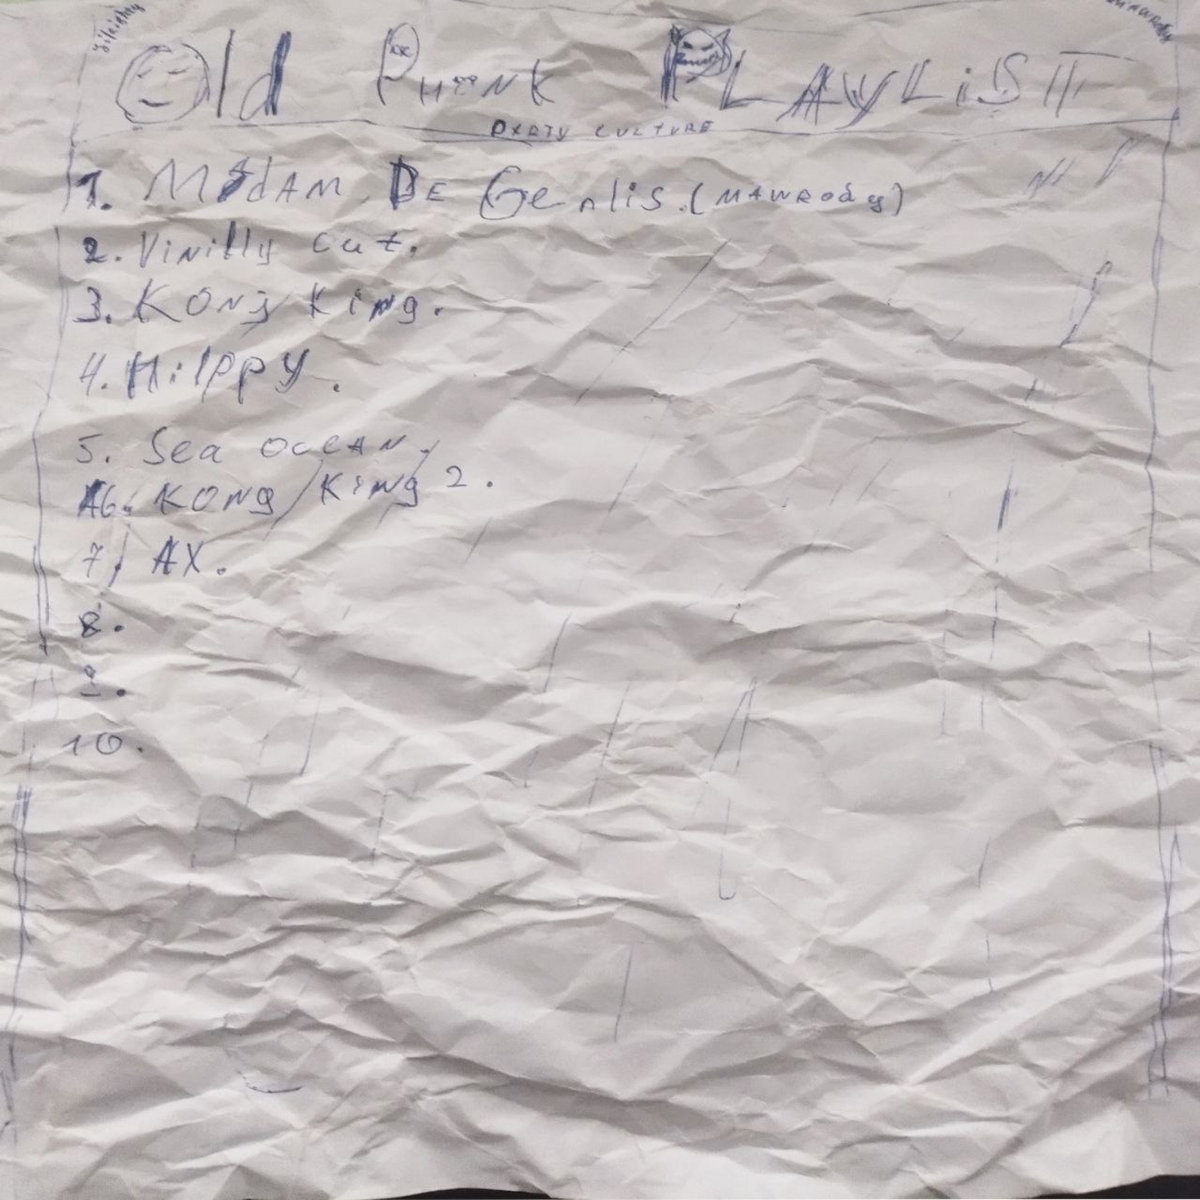 Old Phonk PLAYLiST
DXRTY CULTURE
1. MADAM DE Genlis. (MAWRODY)
2. Vinilly cut.
3. KONg King.
4. Hilppy.
5. Sea OCEAN.
6. KONg King 2.
7. AX.
8.
9.
10.